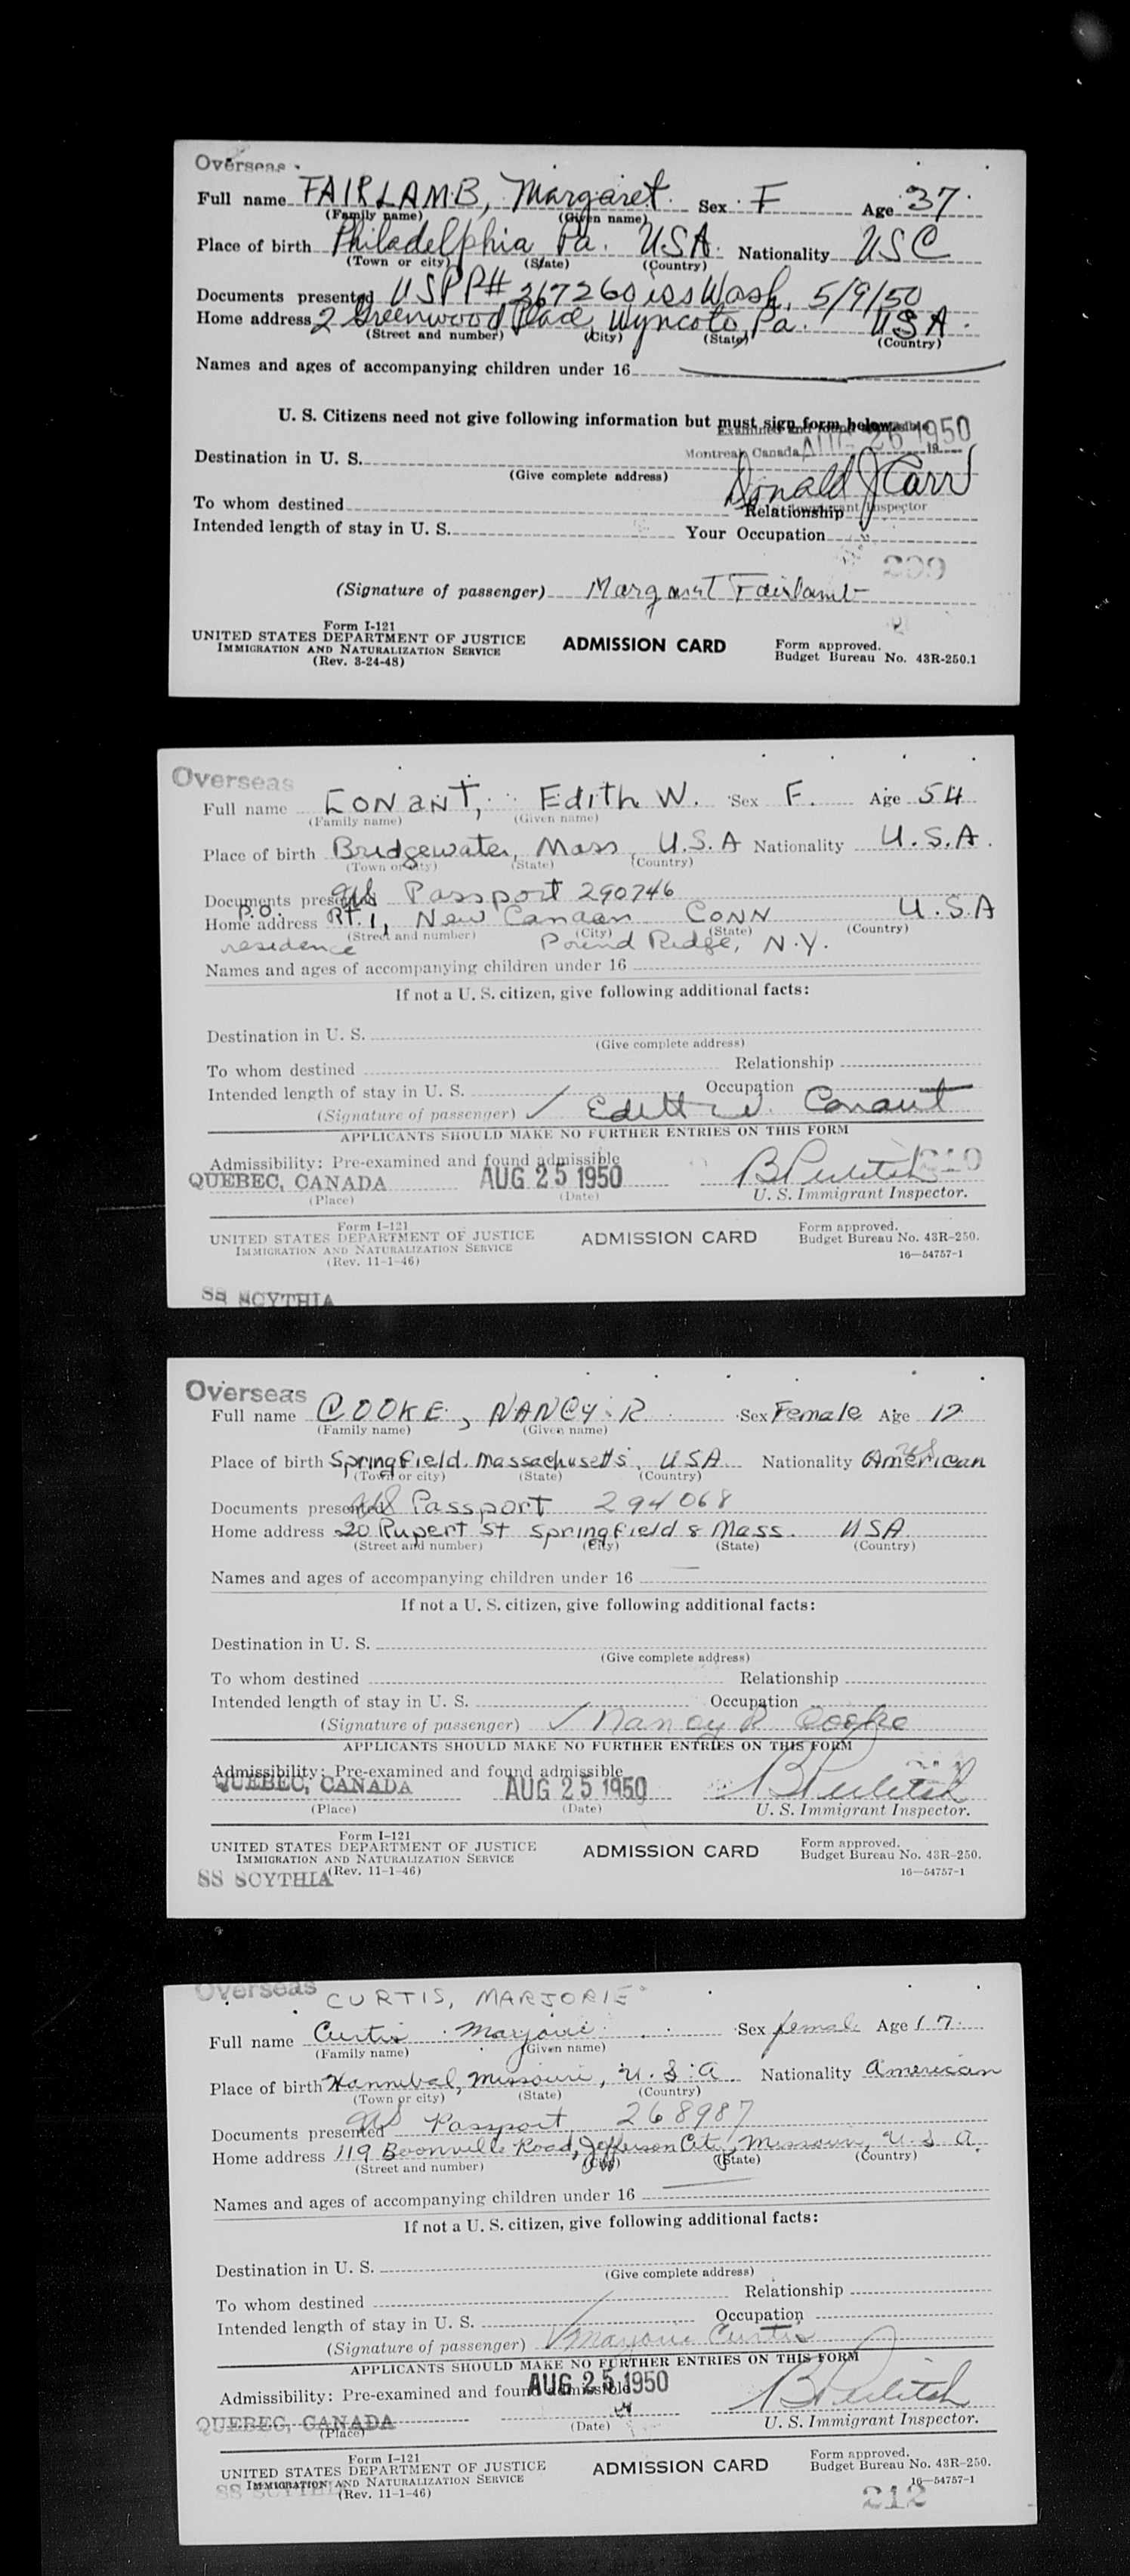 Overseas
Full name FAIRLAMB, Margaret Sex F Age 37
(Family name) (Given name)
Place of birth Philadelphia Pa. USA Nationality USC
(Town or city) (State) (Country)
Documents presented USPP# 267260 iss Wash. 5/9/50
Home address 2 Greenwood Place, Wyncote, Pa. USA.
(Street and number) (City) (State) (Country)
Names and ages of accompanying children under 16
U. S. Citizens need not give following information but must sign form below
Examined and found admissible
Montreal, Canada AUG 26 1950 19
Destination in U. S.
(Give complete address)
Donald J Carr
To whom destined Relationship Immigrant Inspector
Intended length of stay in U. S. Your Occupation
209
(Signature of passenger) Margaret Fairlamb
Form I-121
UNITED STATES DEPARTMENT OF JUSTICE
IMMIGRATION AND NATURALIZATION SERVICE
(Rev. 3-24-48)
ADMISSION CARD
Form approved.
Budget Bureau No. 43R-250.1
Overseas
Full name CONANT, Edith W. Sex F. Age 54
(Family name) (Given name)
Place of birth Bridgewater, Mass, U.S.A Nationality U.S.A.
(Town or city) (State) (Country)
Documents presented US Passport 290746
Home address P.O. RT. 1, New Canaan CONN U.S.A
(Street and number) (City) (State) (Country)
residence Pound Ridge, N.Y.
Names and ages of accompanying children under 16
If not a U. S. citizen, give following additional facts:
Destination in U. S.
(Give complete address)
To whom destined Relationship
Intended length of stay in U. S. Occupation
(Signature of passenger) Edith W. Conant
APPLICANTS SHOULD MAKE NO FURTHER ENTRIES ON THIS FORM
Admissibility: Pre-examined and found admissible
QUEBEC, CANADA AUG 25 1950 210
(Place) (Date) U. S. Immigrant Inspector.
Form I-121
UNITED STATES DEPARTMENT OF JUSTICE
IMMIGRATION AND NATURALIZATION SERVICE
(Rev. 11-1-46)
ADMISSION CARD
Form approved.
Budget Bureau No. 43R-250.
16—54757-1
SS SCYTHIA
Overseas
Full name COOKE, NANCY R Sex Female Age 17
(Family name) (Given name)
Place of birth Springfield, Massachusetts, USA Nationality American US
(Town or city) (State) (Country)
Documents presented US Passport 294068
Home address 20 Rupert St Springfield 8 Mass. USA
(Street and number) (City) (State) (Country)
Names and ages of accompanying children under 16
If not a U. S. citizen, give following additional facts:
Destination in U. S.
(Give complete address)
To whom destined Relationship
Intended length of stay in U. S. Occupation
(Signature of passenger) Nancy R Cooke
APPLICANTS SHOULD MAKE NO FURTHER ENTRIES ON THIS FORM
Admissibility: Pre-examined and found admissible
QUEBEC, CANADA AUG 25 1950
(Place) (Date) U. S. Immigrant Inspector.
Form I-121
UNITED STATES DEPARTMENT OF JUSTICE
IMMIGRATION AND NATURALIZATION SERVICE
(Rev. 11-1-46)
ADMISSION CARD
Form approved.
Budget Bureau No. 43R-250.
16—54757-1
SS SCYTHIA
Overseas
CURTIS, MARJORIE
Full name Curtis Marjorie Sex female Age 17
(Family name) (Given name)
Place of birth Hannibal, Missouri, U.S.A. Nationality American
(Town or city) (State) (Country)
Documents presented US Passport 268987
Home address 119 Boonville Road, Jefferson City, Missouri, U.S.A.
(Street and number) (City) (State) (Country)
Names and ages of accompanying children under 16
If not a U. S. citizen, give following additional facts:
Destination in U. S.
(Give complete address)
To whom destined Relationship
Intended length of stay in U. S. Occupation
(Signature of passenger) Marjorie Curtis
APPLICANTS SHOULD MAKE NO FURTHER ENTRIES ON THIS FORM
Admissibility: Pre-examined and found admissible AUG 25 1950
QUEBEC, CANADA
(Place) (Date) U. S. Immigrant Inspector.
Form I-121
UNITED STATES DEPARTMENT OF JUSTICE
IMMIGRATION AND NATURALIZATION SERVICE
(Rev. 11-1-46)
ADMISSION CARD
Form approved.
Budget Bureau No. 43R-250.
16—54757-1
SS SCYTHIA
212